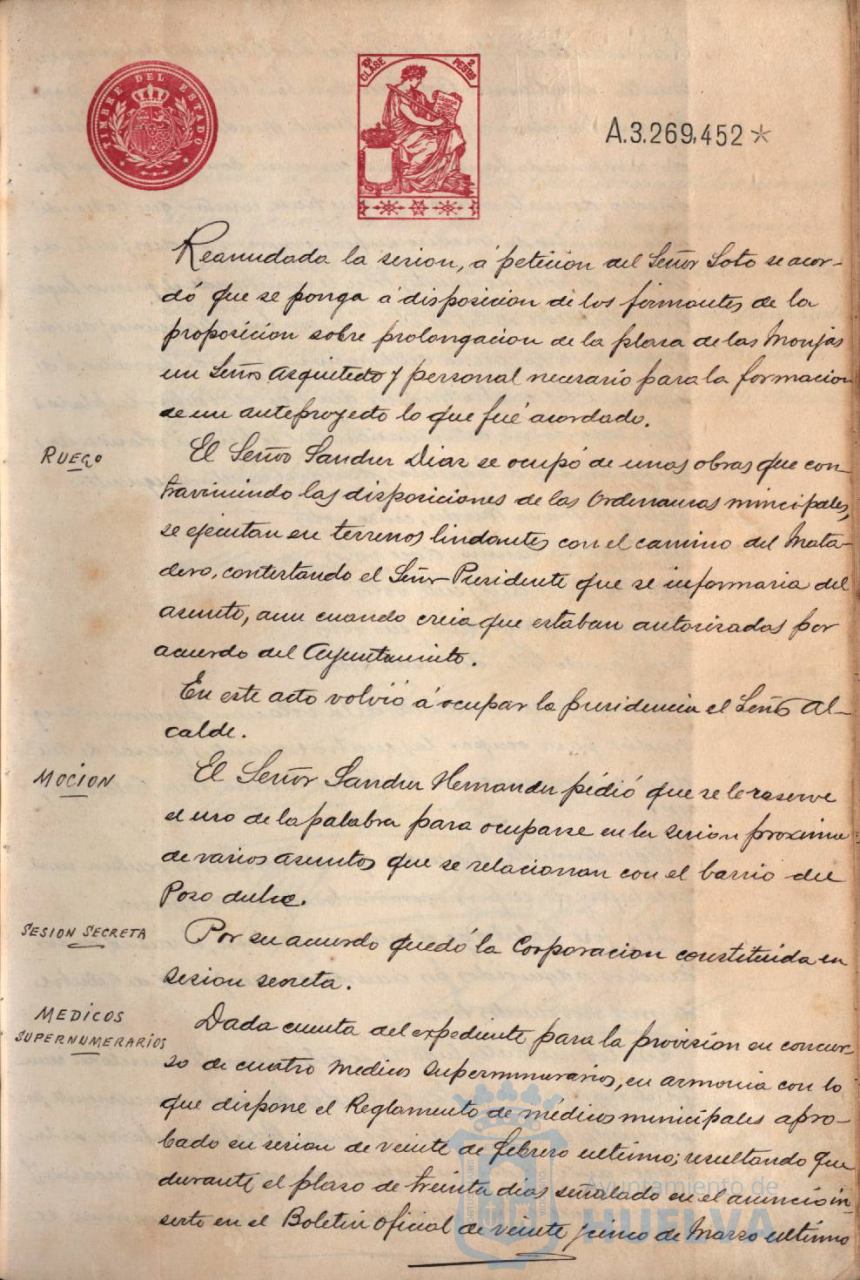 TIMBRE DEL ESTADO
10ª CLASE 2 PESETAS
A.3.269,452
Reanudada la sesion, á peticion del Señor Soto se acor-
dó que se ponga á disposicion de los firmantes de la
proposicion sobre prolongacion de la plasa de las Monjas
un Señor Arquitecto y personal necesario para la formacion
de un anteproyecto lo que fué acordado.
RUEGO
El Señor Sanchez Diaz se ocupó de unas obras que con-
traviniendo las disposiciones de las Ordenanzas municipales,
se ejecutan en terrenos lindantes con el camino del Mata-
dero, contestando el Señor Presidente que se informaria del
asunto, aun cuando creia que estaban autorizadas por
acuerdo del Ayuntamiento.
En este acto volvió á ocupar la presidencia el Señor Al-
calde.
MOCION
El Señor Sanchez Hernandez pidió que se le reserve
el uso de la palabra para ocuparse en la sesion proxima
de varios asuntos que se relacionan con el barrio del
Pozo dulce.
SESION SECRETA
Por su acuerdo quedó la Corporacion constituida en
sesion secreta.
MEDICOS
SUPERNUMERARIOS
Dada cuenta del expediente para la provision en concur-
so de cuatro medicos supernumerarios, en armonia con lo
que dispone el Reglamento de médicos municipales apro-
bado en sesion de veinte de febrero ultimo; resultando que
durante el plazo de treinta dias señalado en el anuncio in-
serto en el Boletin Oficial de veinte y cinco de Marzo ultimo
Ayuntamiento de
HUELVA